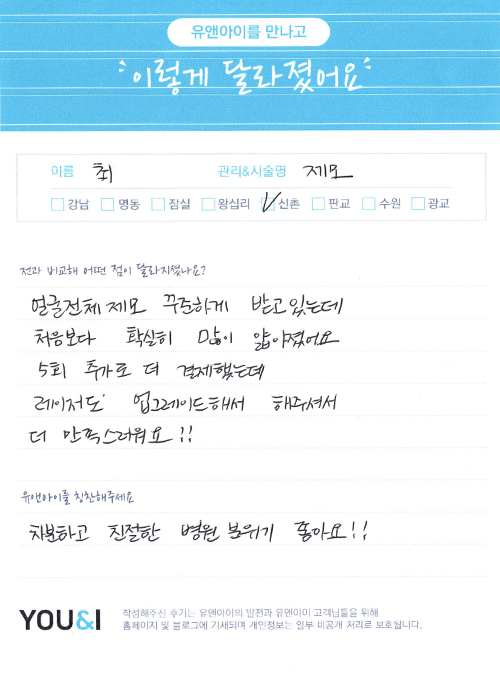 유앤아이를 만나고
이렇게 달라졌어요
이름 최 관리&시술명 제모
강남 명동 잠실 왕십리 신촌 판교 수원 광교
전과 비교해 어떤 점이 달라지셨나요?
얼굴전체 제모 꾸준하게 받고있는데
처음보다 확실히 많이 얇아졌어요
5회 추가로 더 결제했는데
레이저도 업그레이드해서 해주셔서
더 만족스러워요!!
유앤아이를 칭찬해주세요
차분하고 친절한 병원 분위기 좋아요!!
YOU&I
작성해주신 후기는 유앤아이의 발전과 유앤아이 고객님들을 위해
홈페이지 및 블로그에 기재되며 개인정보는 일부 비공개 처리로 보호됩니다.